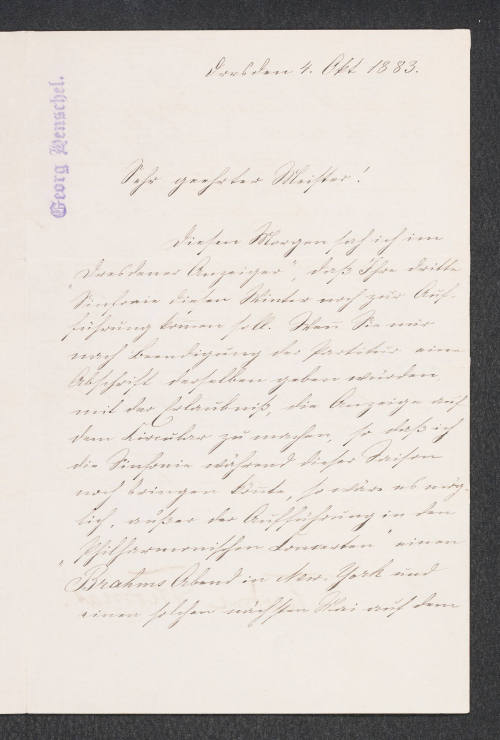 Georg Henschel.
Dresden 4. Okt 1883.
Sehr geehrter Meister!
Diesen Morgen sah ich im
"Dresdener Anzeiger", daß Ihre dritte
Sinfonie diesen Winter noch zur Auf-
führung kommen soll. Wenn Sie mir
nach Beendigung der Partitur eine
Abschrift derselben geben würden,
mit der Erlaubniß, die Anzeige auf
dem Circular zu machen, so daß ich
die Sinfonie während dieser Saison
noch bringen könnte, so wäre es mög-
lich, außer der Aufführung in den
"Philharmonischen Concerten" einen
Brahms Abend in New-York und
einen solchen nächsten Mai auf dem